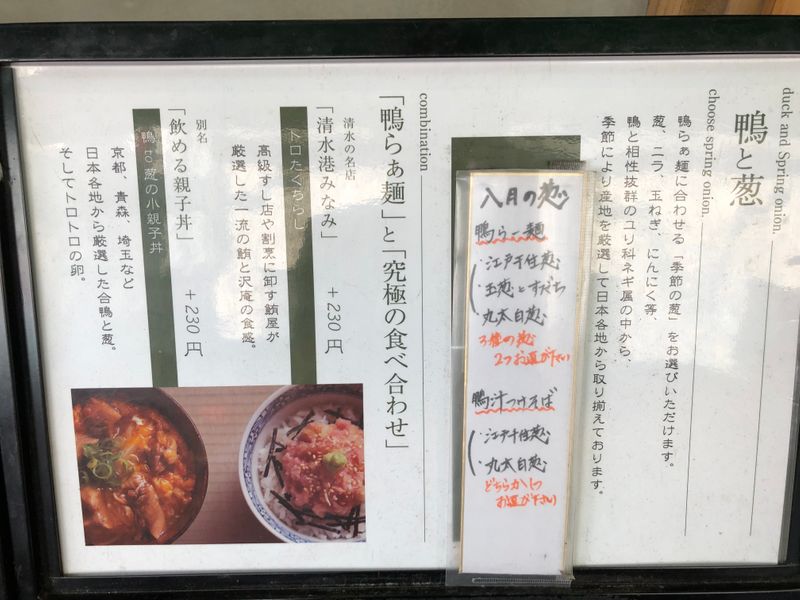 duck and Spring onion.
鴨と葱
choose spring onion.
鴨らぁ麺に合わせる「季節の葱」をお選びいただけます。
葱、ニラ、玉ねぎ、にんにく等、
鴨と相性抜群のユリ科ネギ属の中から、
季節により産地を厳選して日本各地から取り揃えております。
八月の葱
鴨らー麺
・江戸千住葱
・玉葱とすだち
・丸太白葱
3種の葱
2つお選び下さい
鴨汁つけそば
・江戸千住葱
・丸太白葱
どちらか1つ
お選び下さい
combination
「鴨らぁ麺」と「究極の食べ合わせ」
清水の名店
「清水港みなみ」
＋230円
トロたくちらし
高級すし店や割烹に卸す鮪屋が
厳選した一流の鮪と沢庵の食感。
別名
「飲める親子丼」
＋230円
鴨 to 葱の小親子丼
京都、青森、埼玉など
日本各地から厳選した合鴨と葱。
そしてトロトロの卵。